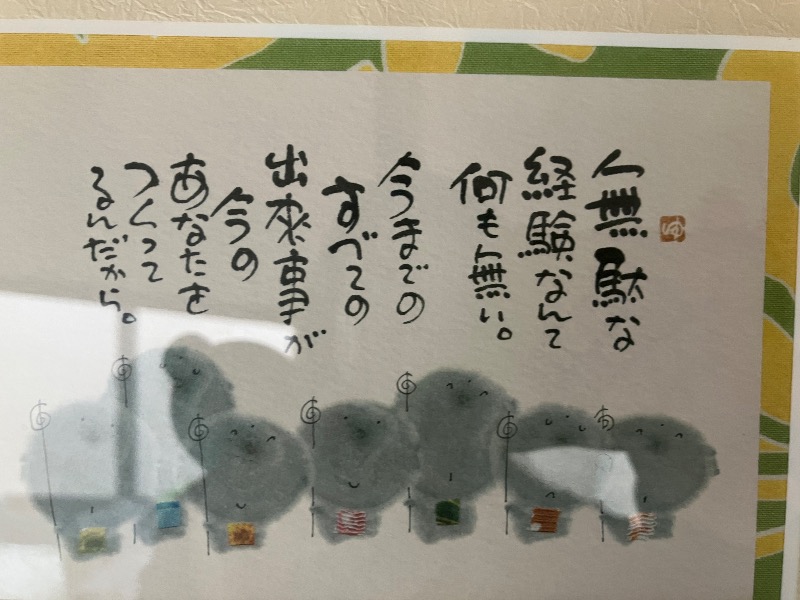 ゆ
無駄な
経験なんて
何も無い。
今までの
すべての
出来事が
今の
あなたを
つくって
るんだから。